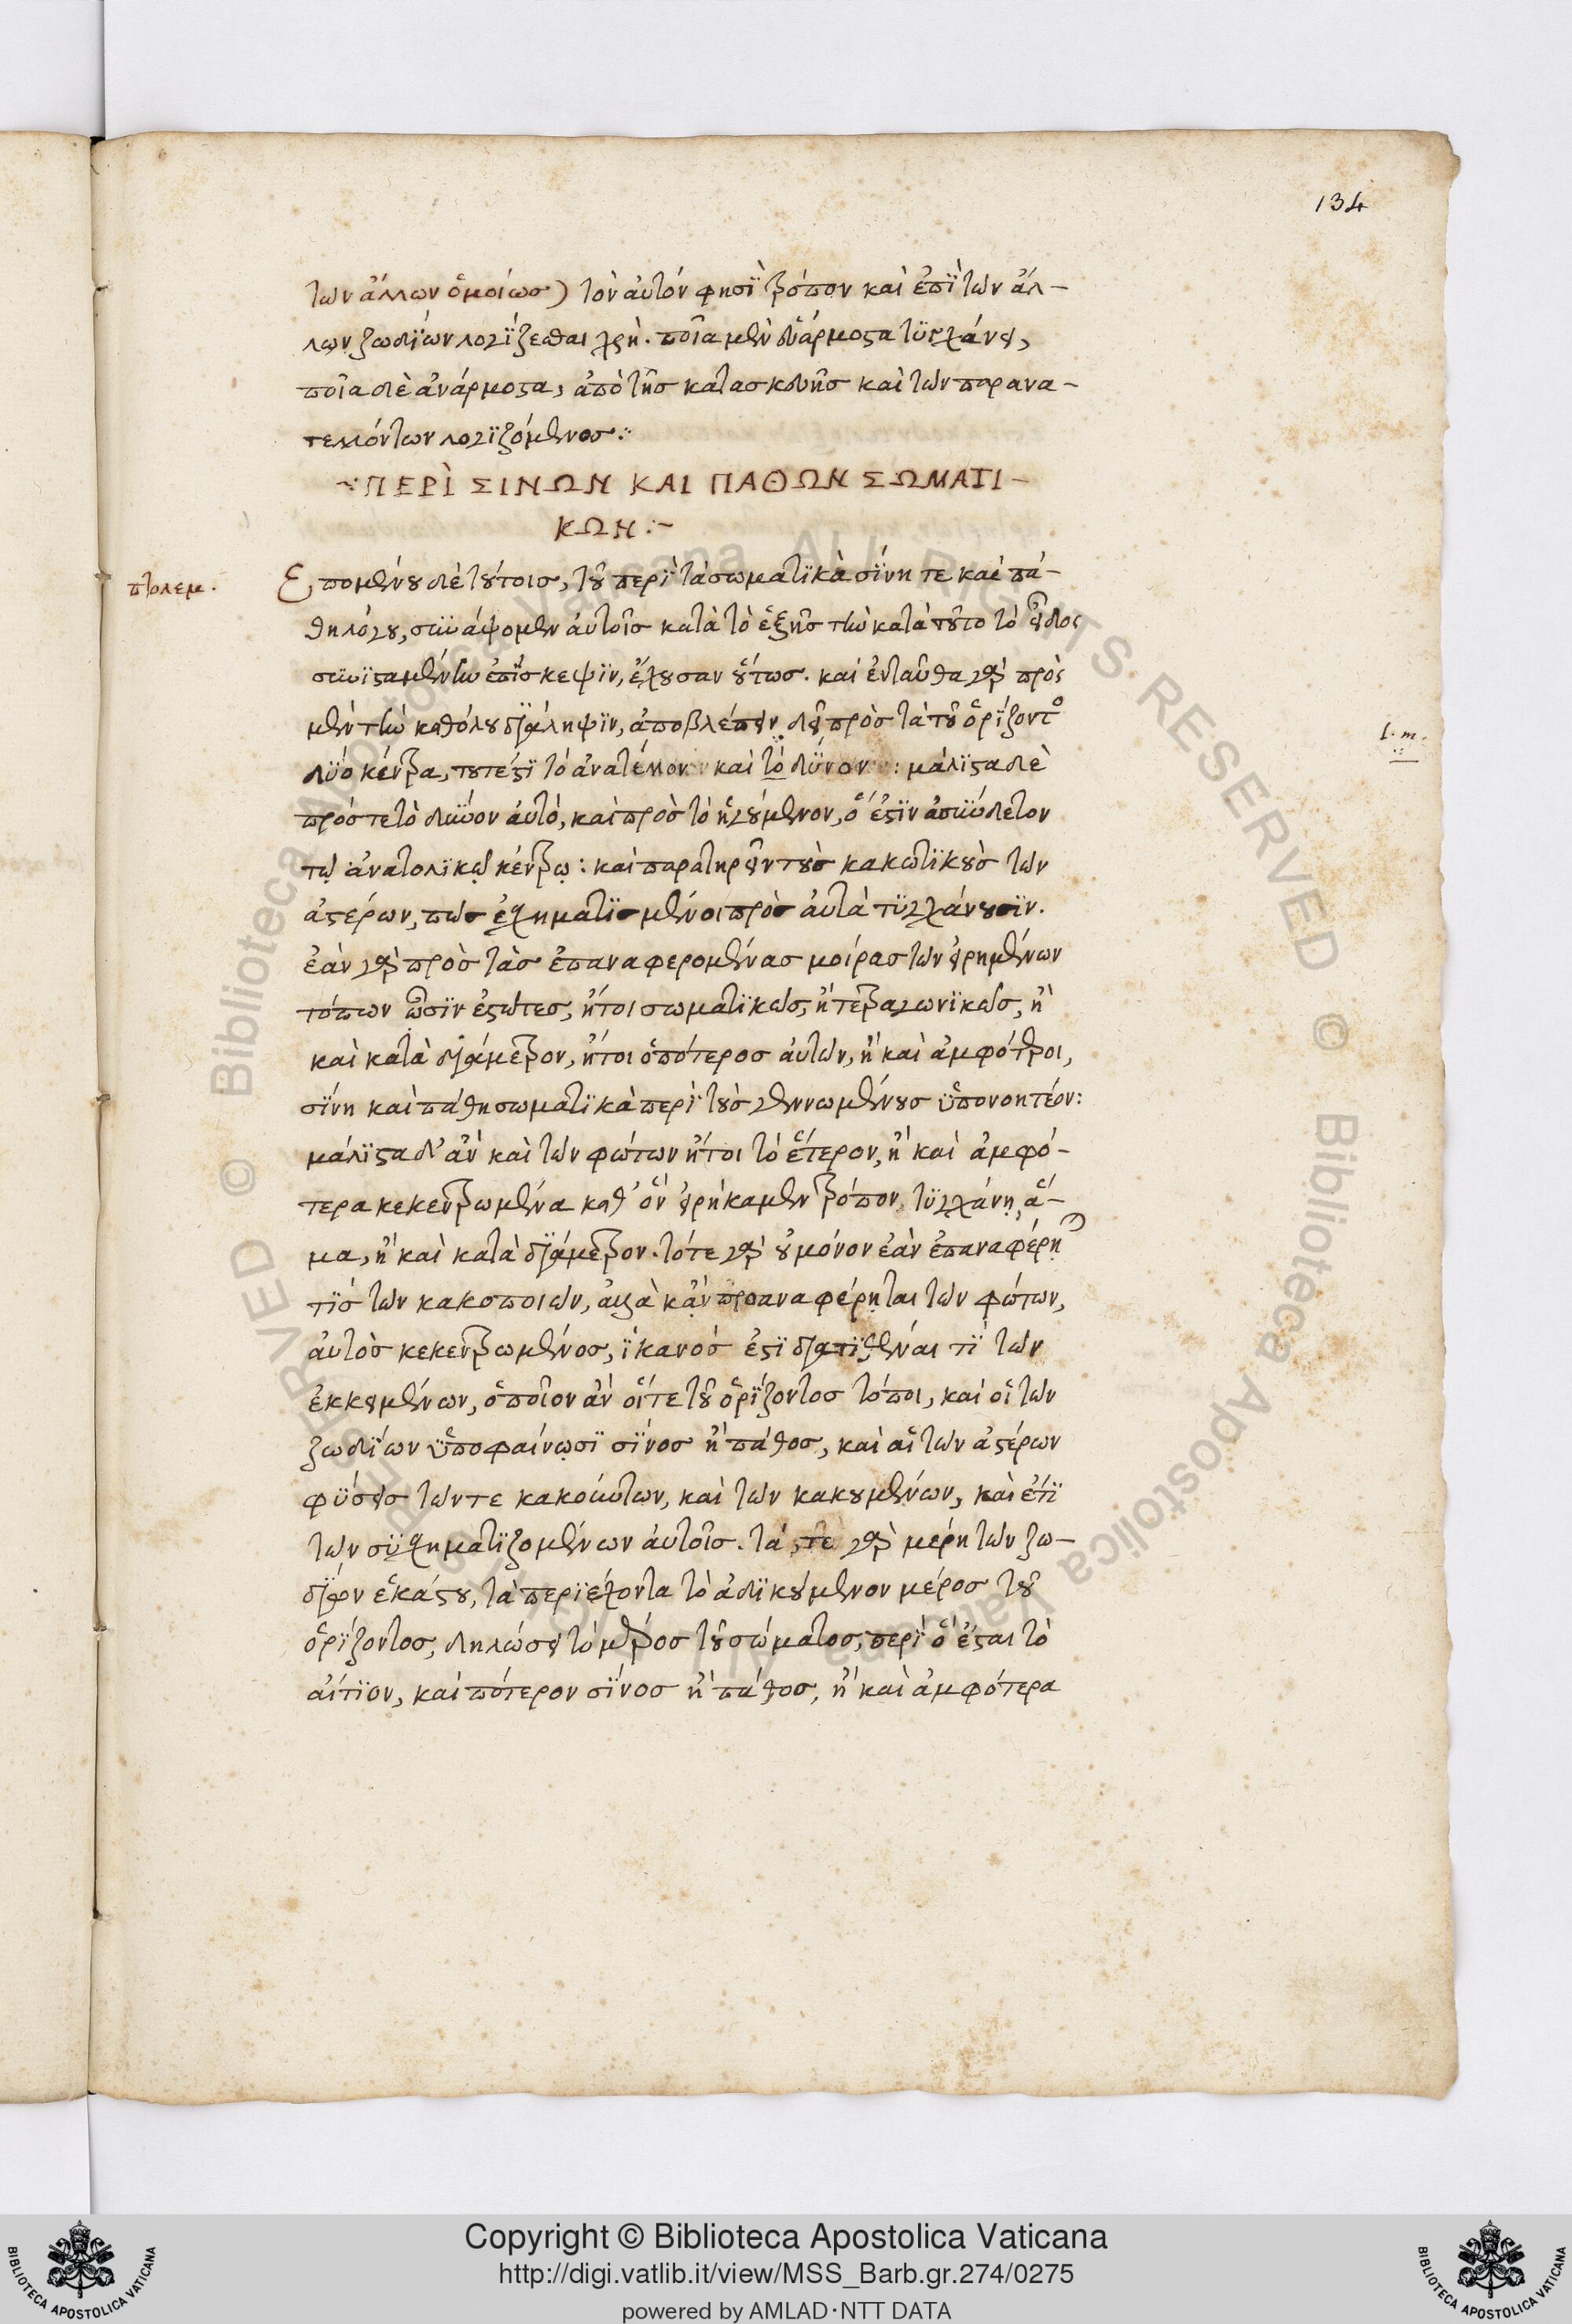 134
τῶν ἄλλων ὁμοίως) τὸν αὐτόν φησϊ τρόπον καὶ ἐπϊ τῶν ἄλ-
λων ζωδΐων λογΐζεσθαι χρὴ. ποῖα μὲν εὐάρμοστα τϋγχάνει,
ποῖα δὲ ἀνάρμοστα, ἀπὸ τῆς κατασκευῆς καὶ τῶν παρανα-
τελλόντων λογϊζόμενος:
ΠΕΡῚ ΣΙΝΩΝ ΚΑΙ ΠΑΘΩΝ ΣΩΜΑΤΙ-
ΚΩΝ:~
πτολεμ.
Επομένου δὲ τούτοις, τοῦ περὶ τὰ σωματϊκὰ σΐνη τε καὶ πά-
θη λόγου, συνάψομεν αὐτοῖς κατὰ τὸ ἑξῆς τὴν κατὰ τοῦτο τὸ εἶδος
συνϊσταμένην ἐπΐσκεψϊν, ἔχουσαν οὕτως. καὶ ἐνταῦθα γὰρ πρὸς
μὲν τὴν καθόλου διάληψϊν, ἀποβλέπειν δεῖ πρὸς τὰ τοῦ ὁρΐζοντος
δύο κέντρα, τουτέστϊ τὸ ἀνατέλλον καὶ τὸ δῦνον: μάλϊστα δὲ
πρός τε τὸ δῦνον αὐτό, καὶ πρὸς τὸ ἡγούμενον, ὅ ἐστϊν ἀσύνδετον
τῷ ἀνατολϊκῷ κέντρῳ: καὶ παρατηρεῖν τοὺς κακωτϊκοὺς τῶν
ἀστέρων, πῶς ἐσχηματϊσμένοι πρὸς αὐτὰ τϋγχάνουσϊν.
ἐὰν γὰρ πρὸς τὰς ἐπαναφερομένας μοίρας τῶν εἰρημένων
τόπων ὦσϊν ἑστῶτες, ἤτοι σωματϊκῶς, ἢ τετραγωνϊκῶς, ἢ
καὶ κατὰ διάμετρον, ἤτοι ὁπότερος αὐτῶν, ἢ καὶ ἀμφότεροι,
σΐνη καὶ πάθη σωματϊκὰ περϊ τοὺς γεννωμένους ὑπονοητέον:
μάλϊστα δ' ἂν καὶ τῶν φώτων ἤτοι τὸ ἕτερον, ἢ καὶ ἀμφό-
τερα κεκεντρωμένα καθ' ὃν εἰρήκαμεν τρόπον, τϋγχάνῃ, ἅ-
μα, ἢ καὶ κατὰ διάμετρον. τότε γὰρ οὐ μόνον ἐὰν ἐπαναφέρηται
τϊς τῶν κακοποιῶν, ἀλλὰ κἂν προαναφέρηται τῶν φώτων,
αὐτὸς κεκεντρωμένος, ἱκανός ἐστϊ διατϊθέναι τΐ τῶν
ἐκκειμένων, ὁποῖον ἂν οἵ τε τοῦ ὁρΐζοντος τόποι, καὶ οἱ τῶν
ζωδΐων ὑποφαίνωσϊ σΐνος ἢ πάθος, καὶ αἱ τῶν ἀστέρων
φύσεις τῶν τε κακούντων, καὶ τῶν κακουμένων, καὶ ἔτϊ
τῶν σϋσχηματϊζομένων αὐτοῖς. τά τε γὰρ μέρη τῶν ζω-
δίων ἑκάστου, τὰ περϊέχοντα τὸ ἀδϊκούμενον μέρος τοῦ
ὁρΐζοντος, δηλώσει τὸ μέρος τοῦ σώματος, περὶ ὃ ἔσται τὸ
αἴτϊον, καὶ πότερον σΐνος ἢ πάθος, ἢ καὶ ἀμφότερα
Copyright © Biblioteca Apostolica Vaticana
http://digi.vatlib.it/view/MSS_Barb.gr.274/0275
powered by AMLAD·NTT DATA
BIBLIOTECA APOSTOLICA VATICANA
BIBLIOTECA APOSTOLICA VATICANA